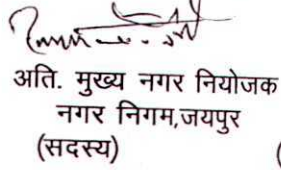 अति. मुख्य नगर नियोजक
नगर निगम,जयपुर
(सदस्य)
(